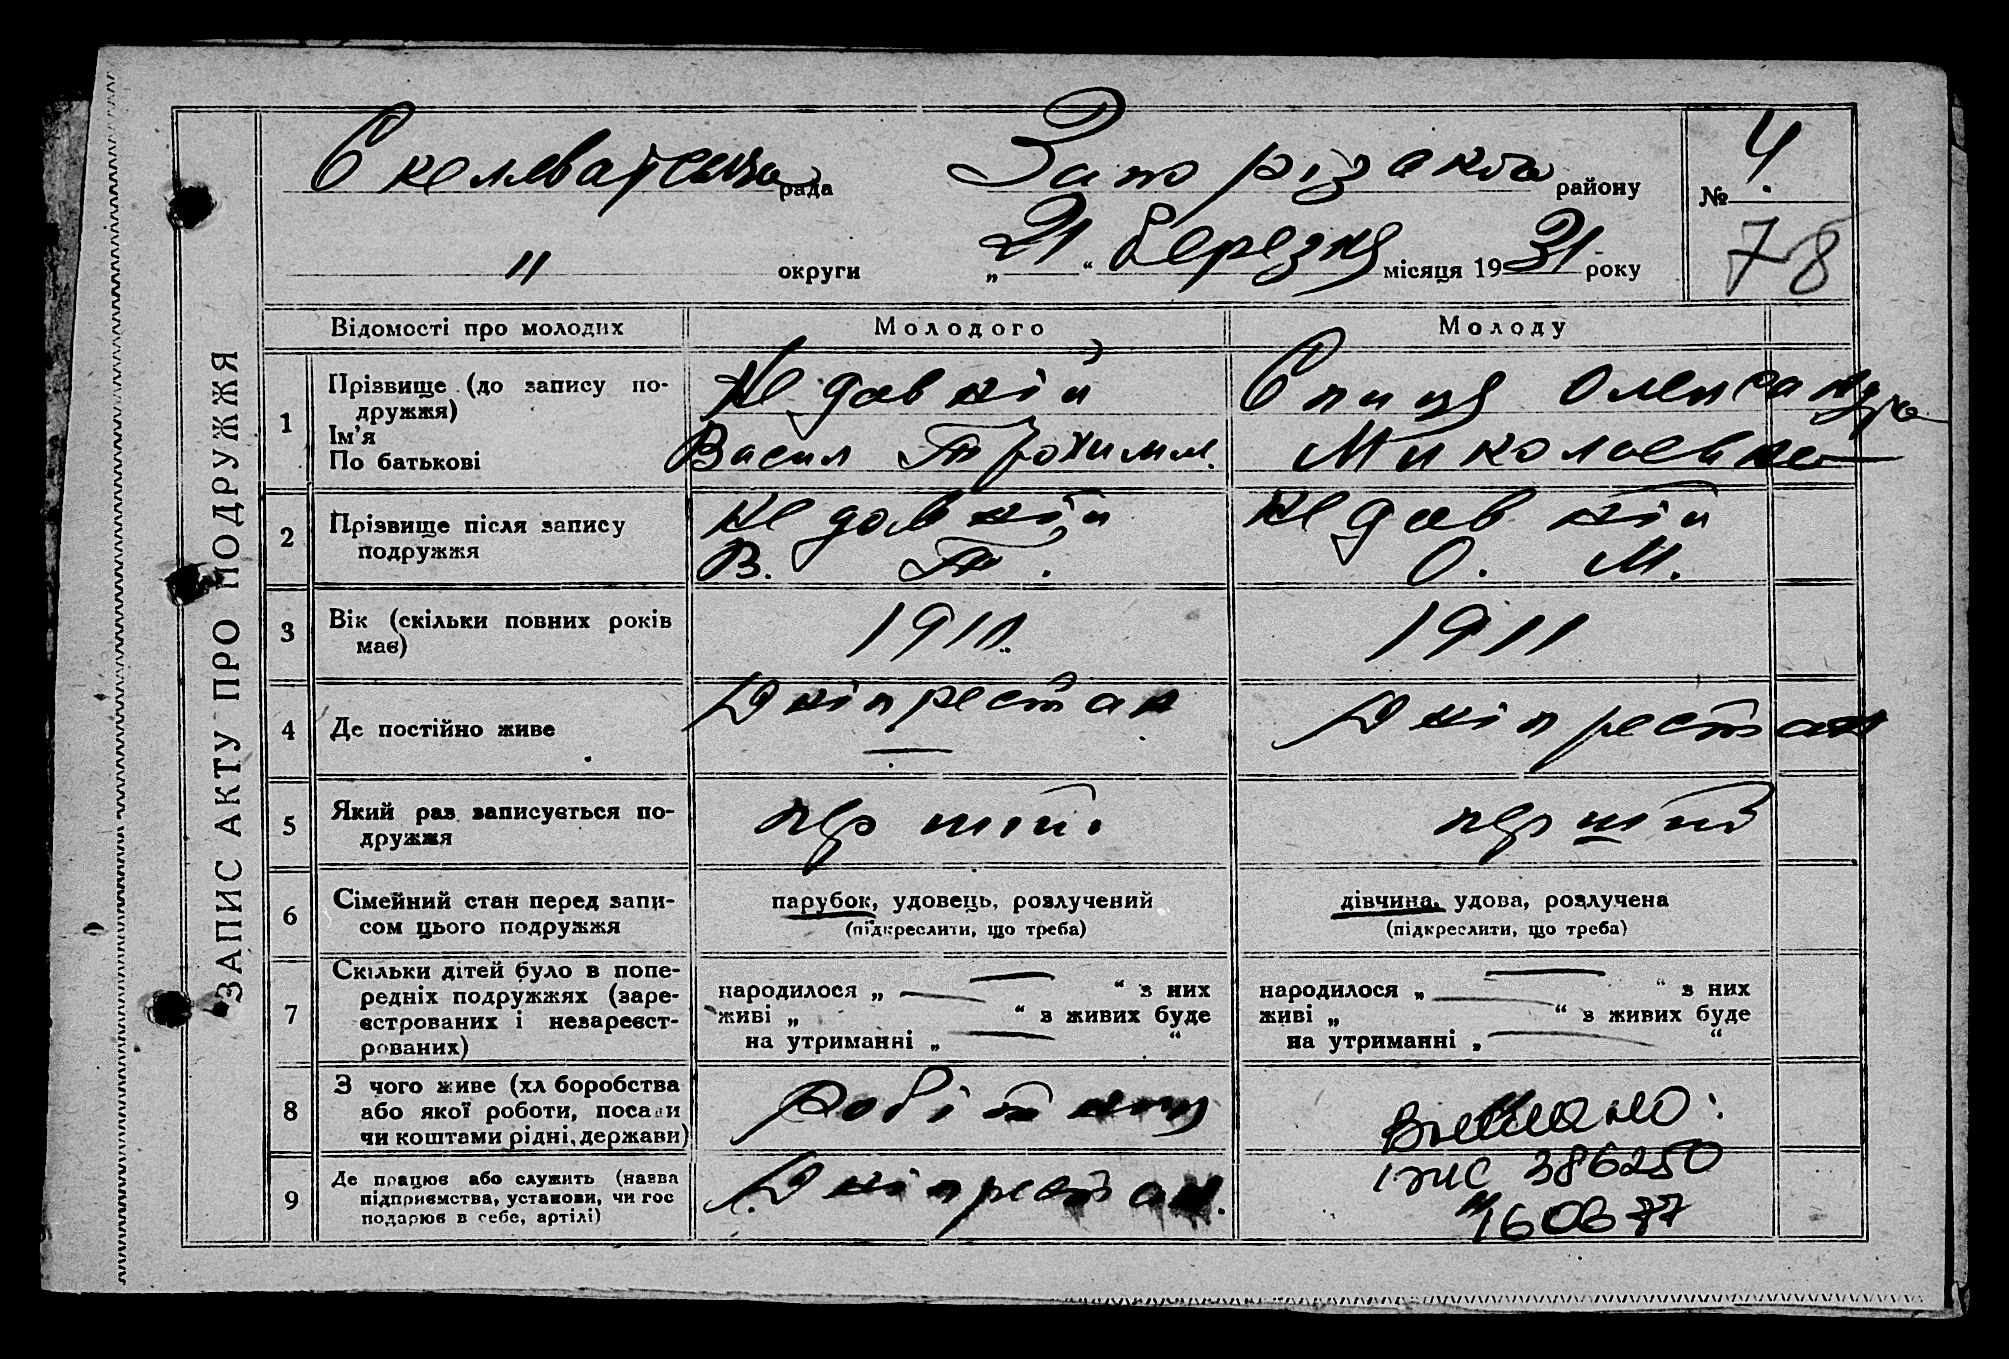 ЗАПИС АКТУ ПРО ПОДРУЖЖЯ
рада Запорізака району № 4
" округи „21“ березня місяця 1931 року 78
Відомості про молодих Молодого Молоду
1 Прізвище (до запису по-
дружжя)
Ім'я
По батькові
Недавній
Василь Трохимм.
Спиця Олександра
Миколаевна
2 Прізвище після запису
подружжя
Недавній
В. Т.
Недавній
О. М.
3 Вік (скільки повних років
має)
1911 1911
4 Де постійно живе Дніпрестан Дніпрестан
5 Який раз записується по-
дружжя
перший перший
6 Сімейний стан перед запи-
сом цього подружжя
парубок, удовець, розлучений
(підкреслити, що треба)
дівчина, удова, розлучена
(підкреслити, що треба)
7 Скільки дітей було в попе-
редніх подружжях (заре-
єстрованих і незареєст-
рованих)
народилося „ “ з них
живі „ “ з живих буде
на утриманні „ “
народилося „ “ з них
живі „ “ з живих буде
на утриманні „ “
8 З чого живе (хл боробства
або якої роботи, посади
чи коштами рідні, держави)
робітник
9 Де працює або служить (назва
підприємства, установи, чи гос
подарює в себе, артілі)
Дніпрестан.
386250
160677